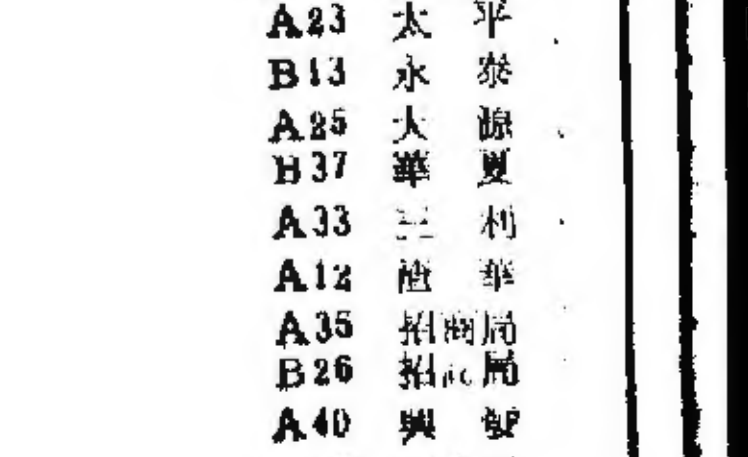 A23 太平
B13 永泰
A25 大源
B37 華夏
A33 三利
A12 華
A35 招商局
B26 招商局
A40 興